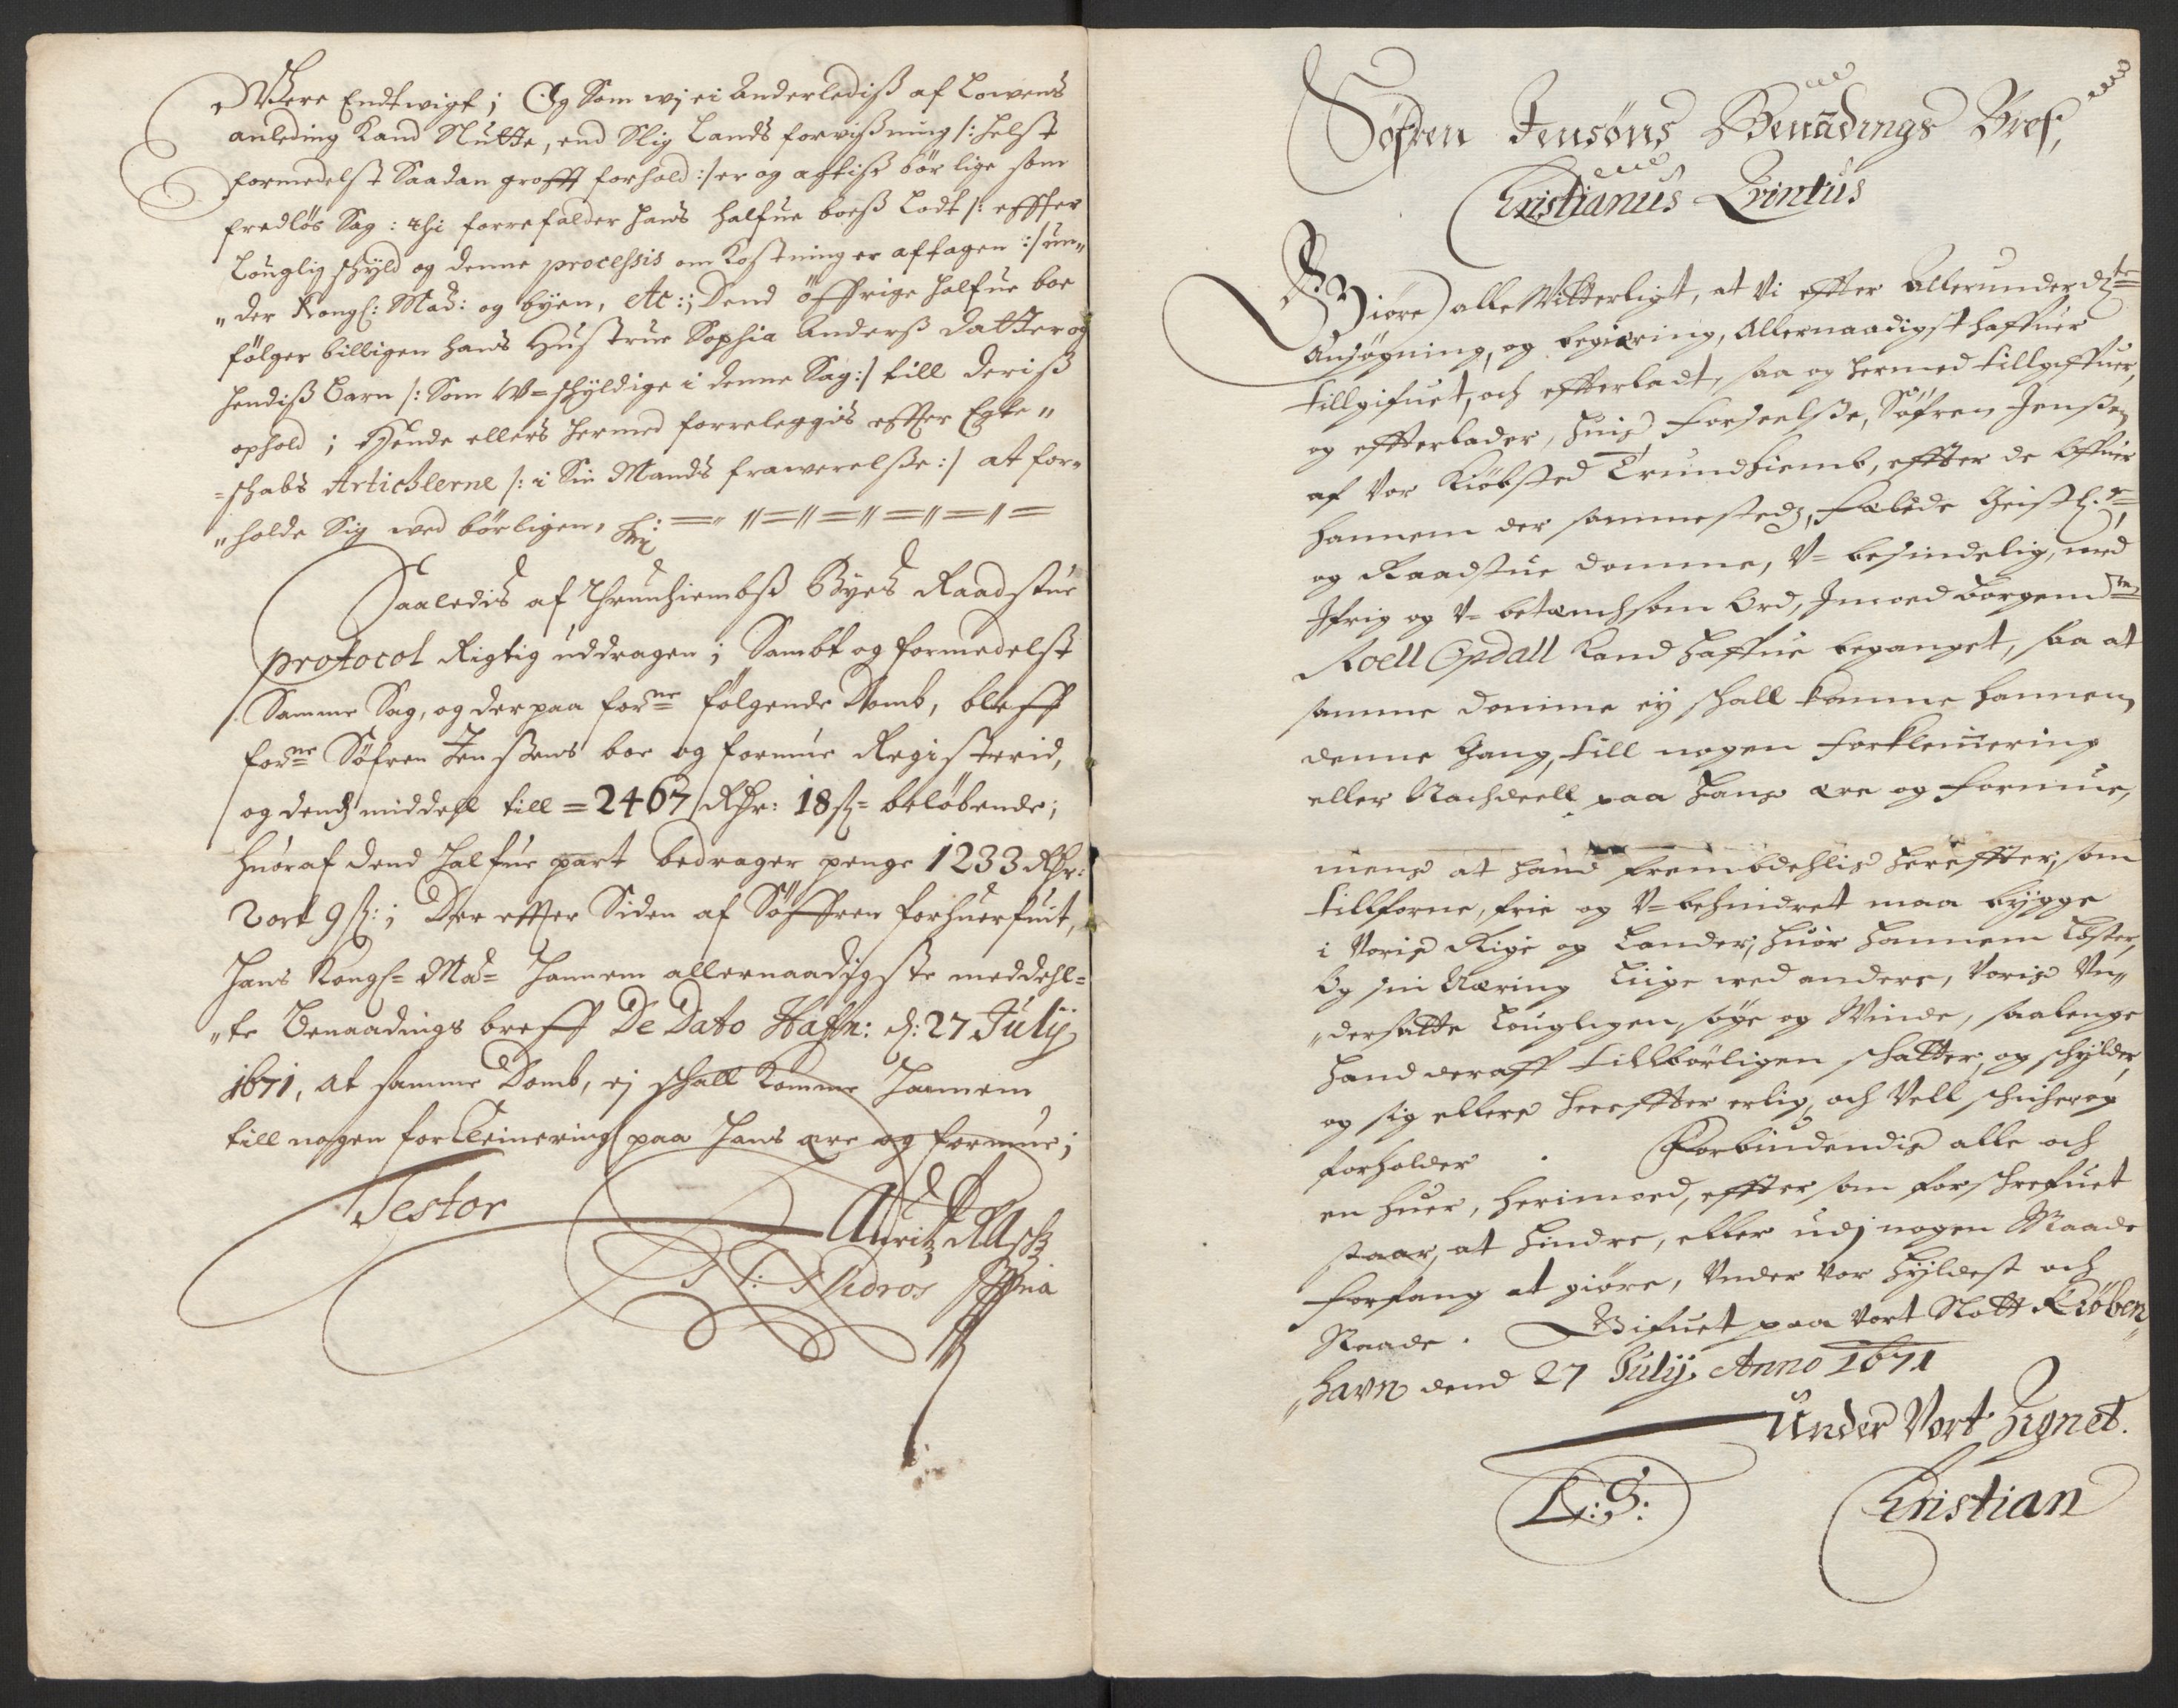 Were Endtwigt; Og Som wj ei Anderlediß af Lowens
anleding Kand Slutte, end Slig Lands forvißning /: helst
formedelst Saadan grofft forhold :/ er og actiß bør lige som
fredløs Sag: thi forrefalder hans halfue boeß Lodt /: effter
Louglig schyld og denne processis omkostning er aftagen :/ un„
„der Kongl: Maÿ: og byen, etc:; Dend öffrige halfue boe
følger billigen hans Hustrue Sophia Anderß datter og
hendiß Barn /: Som W=schyldige i denne Sag :/ till deriß
ophold; Hende ellers hermed forreleggis effter Egte„
=schabs Articklerne /: i Sin Mands frawerelße :/ at for„
„holde Sig ved börligen,
Saaledis af Thrunhiembß Byes Raadstue
protocol Rigtig uddragen; Sambt og formedelst
Samme Sag, og der paa forne følgende Domb, bleff
forne Söfren Jenßens boe og formue Registerid,
og dend middell till = 2467 Rdr: 18 s= beløbende;
huoraf dend halfue part bedrager penge 1233 Rdr:
2 ort 9 s:; Der effter Siden af Söffren forhuerfuit,
Hans Kongl= May= hannem allernaadigste meddehl=
„te Benaadings breff De Dato Haffn: d: 27 Julij
1671, at samme Domb, ej schall komme hannem
till nogen forkleinering paa hans ære og formue;
Testor
Auritz Rasch
N: Nidros
Söfren Jensøns Benådings Bref,
Cristianus Qvintus
Giöre alle Witterligt, at Vi effter Allerunderdte
Ansøgning, og begiæring, Allernaadigst haffuer
tillgifuet, och effterladt, saa og hermed tillgiffuer,
og effterlader, huis forseelße, Söfren Jenßen
af Vor Kiöbsted Trundhiemb, effter de offuer
hannem der sammesteds, fælede Geistl:e
og Raadstue domme, V=besindelig, med
Ifrig og V=betænchsom Ord, Imoed borgemstr
Roell Opdall kand haffue beganget, saa at
samme domme ey schall komme hannem
denne Gang, till nogen forkleinering
eller Nachdeell paa hans ære og formue,
mens at hand frembdehlis hereffter, som
tillforne, frie og V=behindret maa bygge
i Voris Rige og Lander, huor hannem Løster,
Og sin Næring Liige ved andere, Voris Un„
„dersatte Louglligen, søge og Winde, saalenge
hand deraff tillbörligen schatter, og schylder,
og sig ellers hereffter erlig, och Vell schicher og
forholder. Forbiudendis alle och
en huer, herimoed, effter som forschrefuet
staar, at hindre, eller udj nogen Maade
forfang at giöre, Under Vor hyldest och
Naade. Gifuet paa Vort Slott Kiöben„
„havn dend 27 Julij Anno 1671
Under Vort Zignet.
L: S:
Cristian